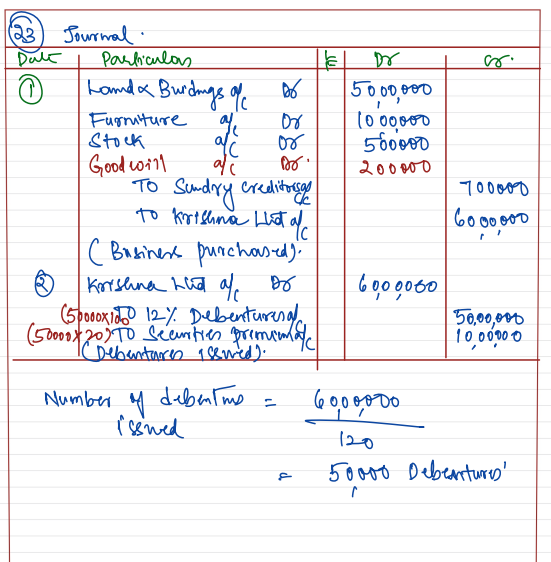 23 Journal.
Date Particulars LF Dr Cr.
① Land & Buildings a/c Dr 50,00,000
Furniture a/c Dr 10,00,000
Stock a/c Dr 500000
Goodwill a/c Dr. 200000
To Sundry creditors a/c 700000
To Krishna Ltd a/c 60,00,000
(Business purchased).
② Krishna Ltd a/c Dr 60,00,000
(50000x100) To 12% Debentures a/c 50,00,000
(50000x20) To Securities premium a/c 10,00,000
(Debentures issued).
Number of debentures = 60,00,000
issued 120
= 50,000 Debentures'